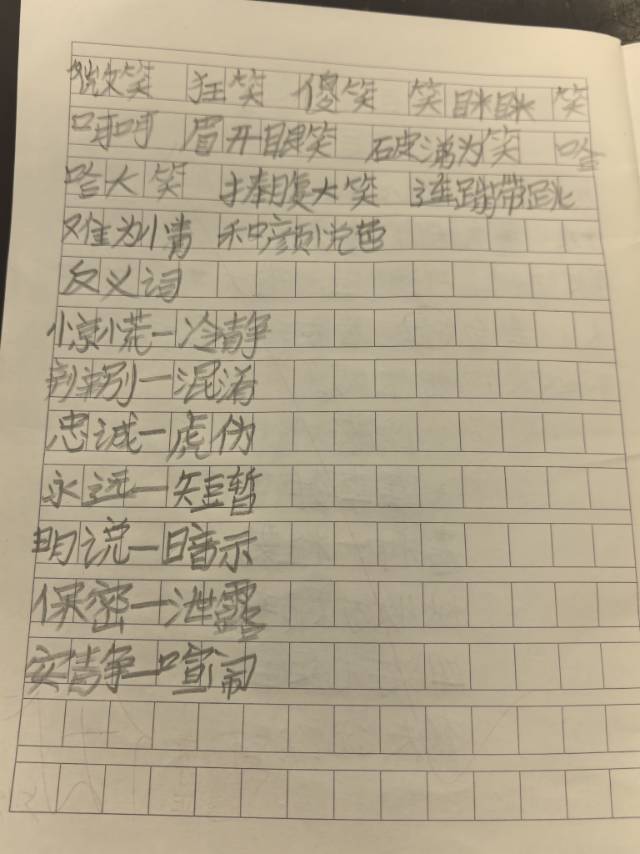 微笑 狂笑 傻笑 笑眯眯 笑
呵呵 眉开眼笑 破涕为笑 哈
哈大笑 捧腹大笑 连蹦带跳
难为情 和颜悦色
反义词
惊慌—冷静
辨别—混淆
忠诚—虚伪
永远—短暂
明说—暗示
保密—泄露
安静—喧闹